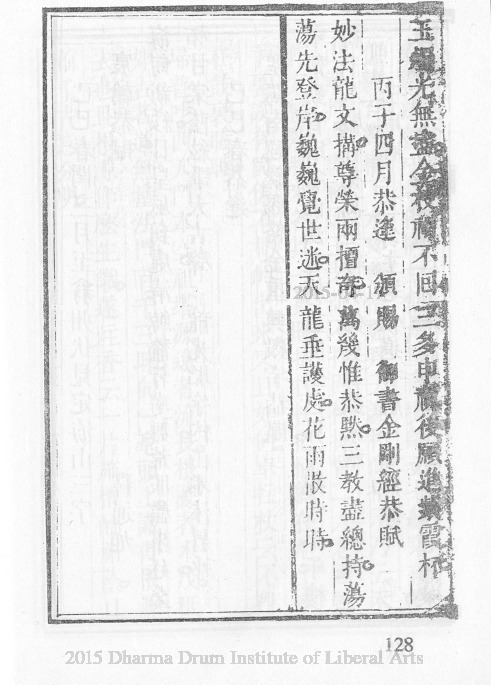 玉光無盡。金枝不回。三多申祝後。願進紫霞杯。
丙子四月恭逢 頒賜 御書金剛經恭賦
妙法龍文搆。尊榮兩擅奇。萬幾惟恭黙。三教盡總持。蕩
蕩先登岸。巍巍覺世迷。天龍垂護處。花雨散時時。
128
2015 Dharma Drum Institute of Liberal Arts